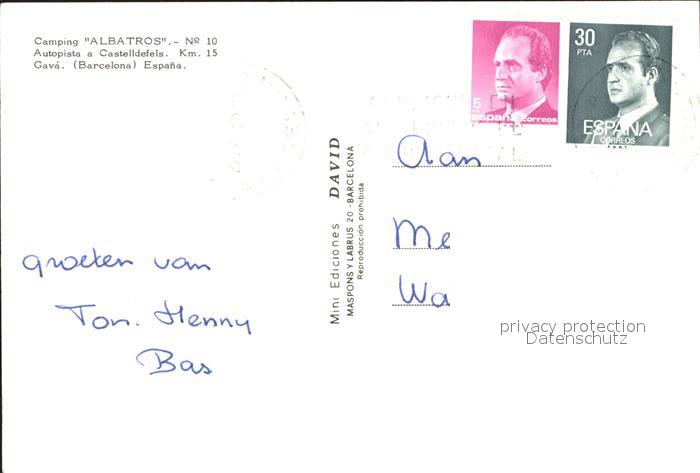 Camping "ALBATROS".- Nº 10
Autopista a Castelldefels. Km. 15
Gavá. (Barcelona) España.
5
españa correos
F.N.M.T.
30
PTA
ESPAÑA
CORREOS
F.N.M.T.
Mini Ediciones DAVID
MASPONS Y LABRUS 20 - BARCELONA
Reproducción prohibida
Aan
Me
Wa
groeten van
Ton. Henny
Bas
privacy protection
Datenschutz